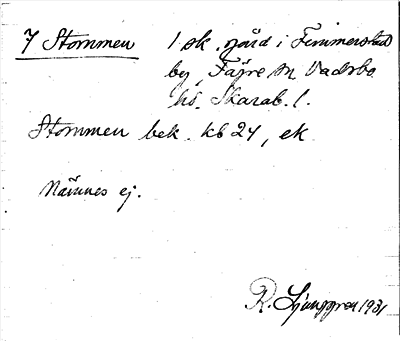 7 Stommen 1 sk. gård i Fimmerstad
by, Fägre sn Vadsbo
hd. Skarab. l.
Stommen bek. kb 24, ek
Nämnes ej.
R. Ljunggren 1931